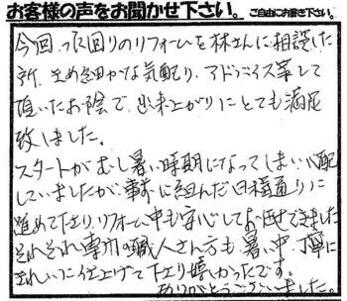 お客様の声をお聞かせ下さい。ご自由にお書き下さい。
今回、水回りのリフォームを林さんに相談した
所、きめ細かな気配り、アドバイス等して
頂いたお陰で、出来上がりにとても満足
致しました。
スタートがむし暑い時期になってしまい心配
していましたが事前に組んだ日程通りに
進めて下さり、リフォーム中も安心してお任せできました
それぞれ専門の職人さん方も、暑い中、丁寧に
きれいに仕上げて下さり嬉しかったです。
ありがとうございました。